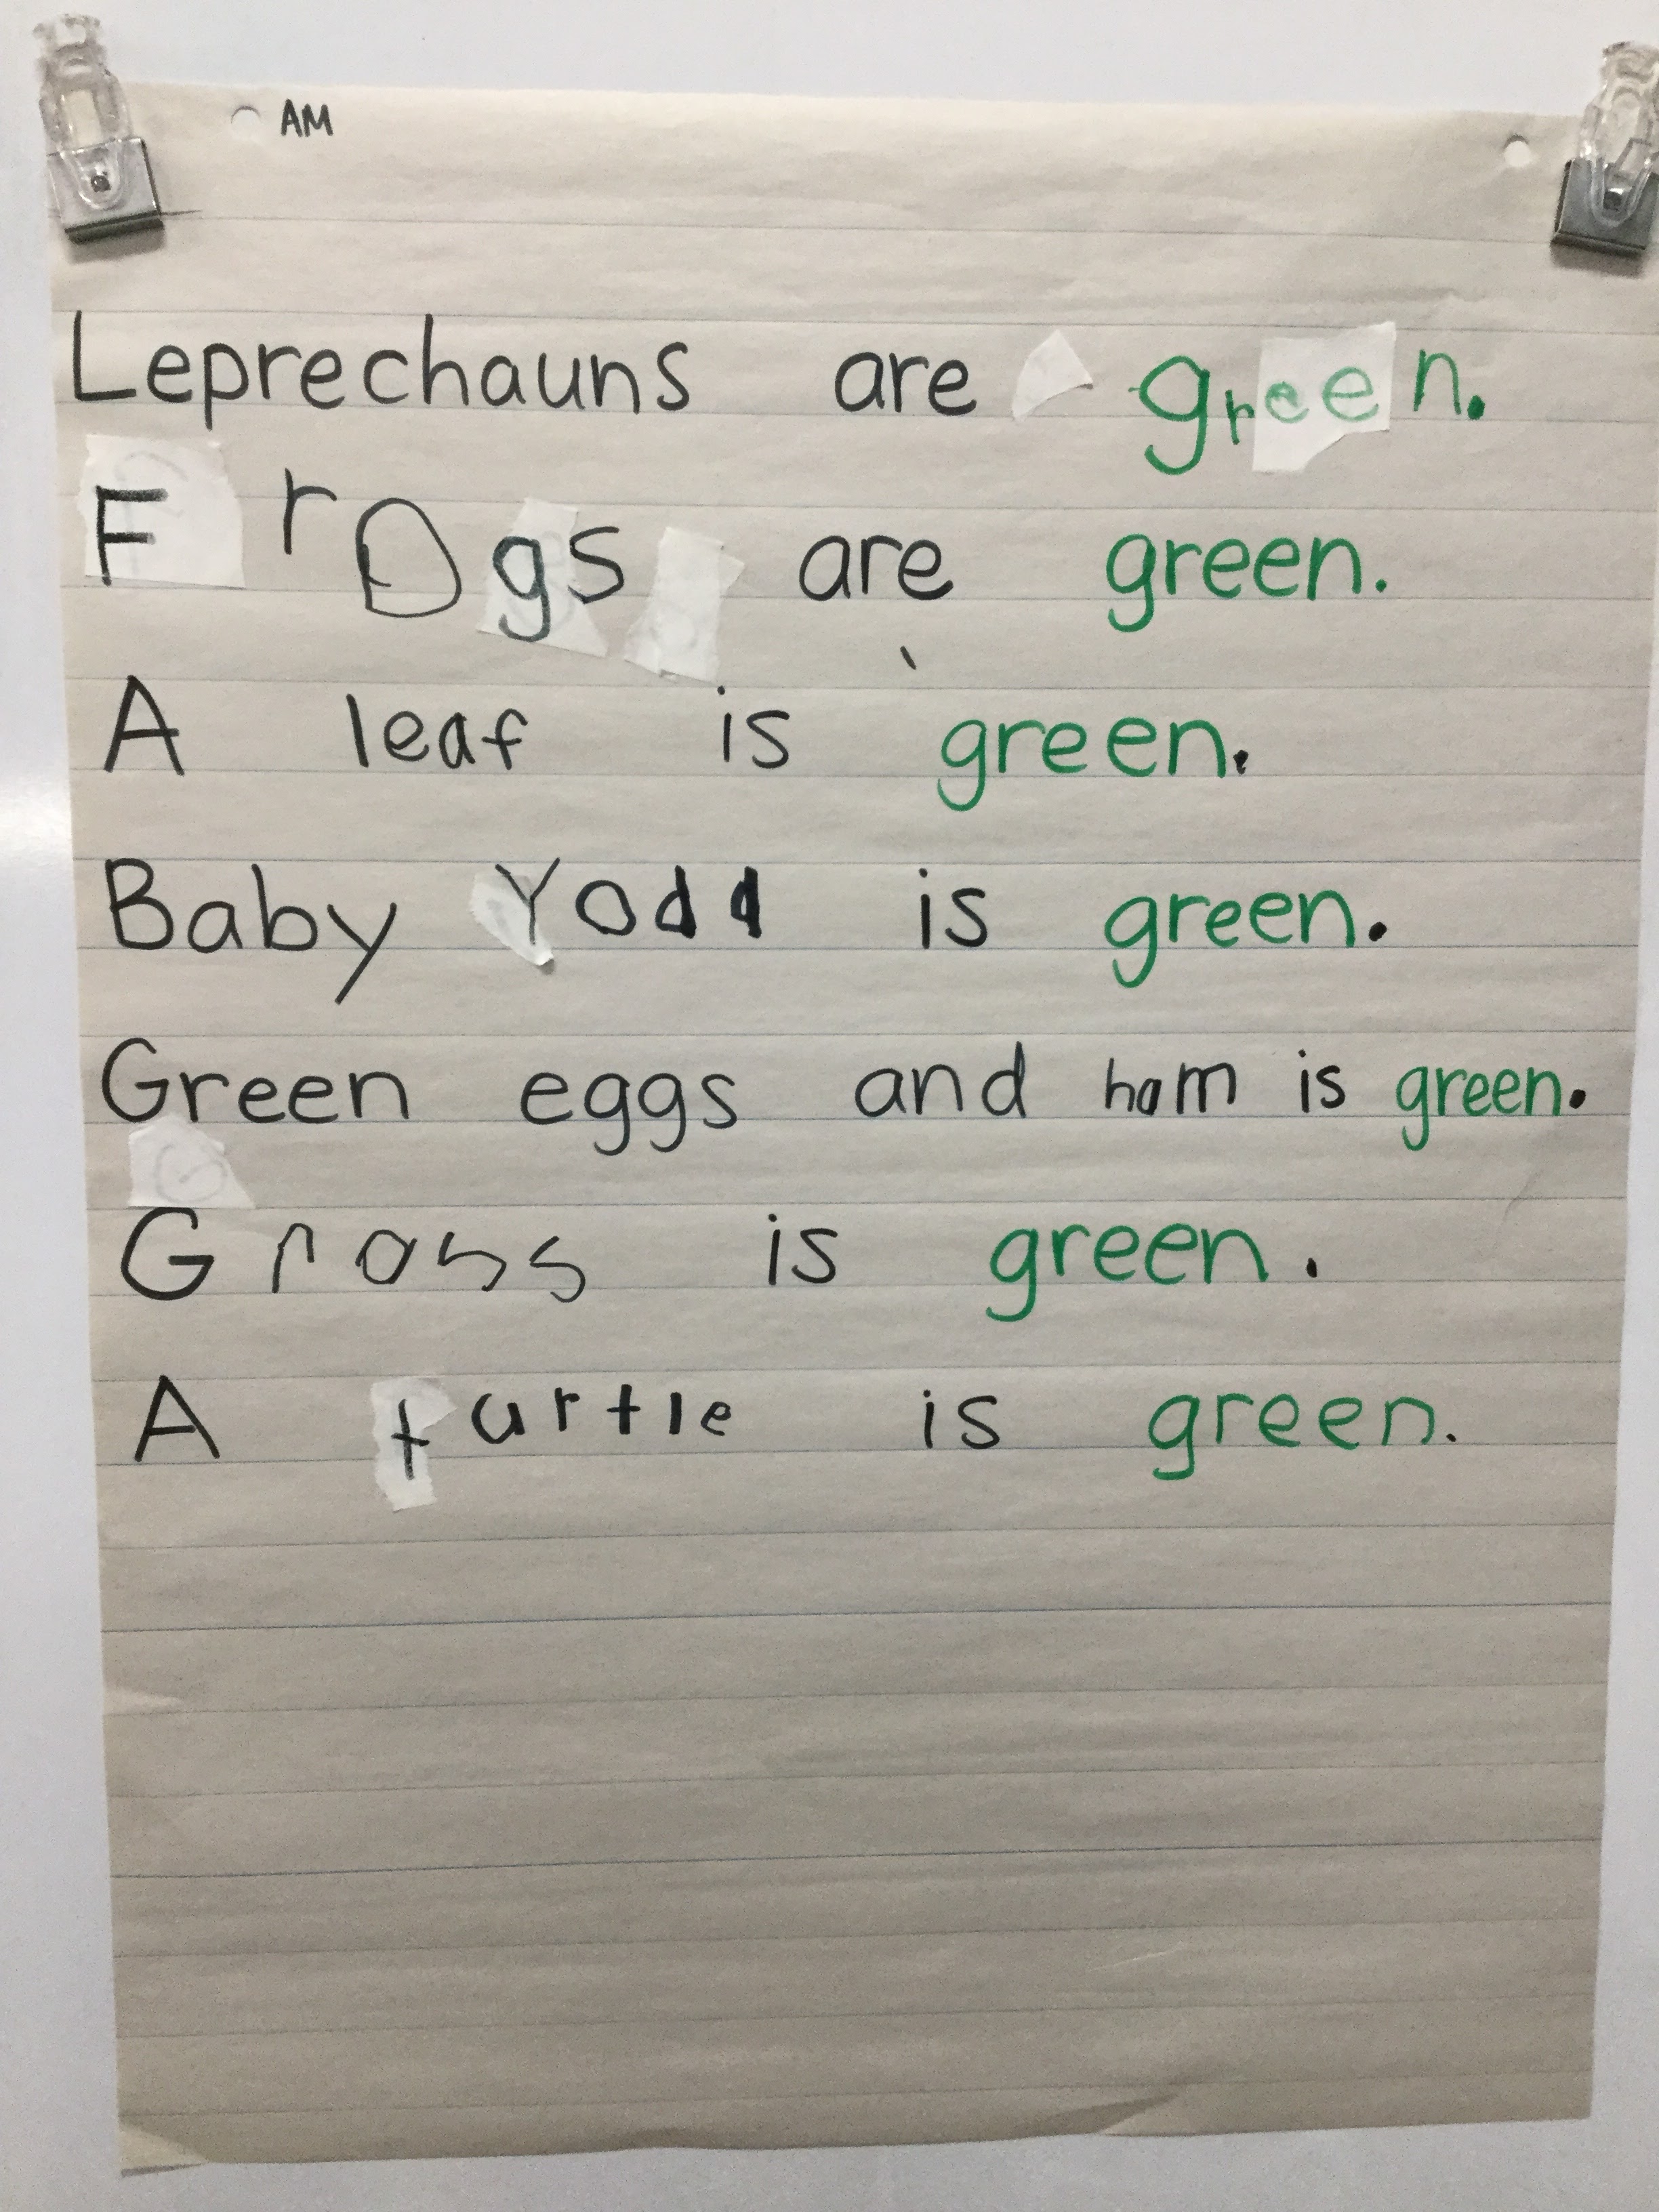 AM
Leprechauns are green.
Frogs are green.
A leaf is green.
Baby Yoda is green.
Green eggs and ham is green.
Grass is green.
A turtle is green.